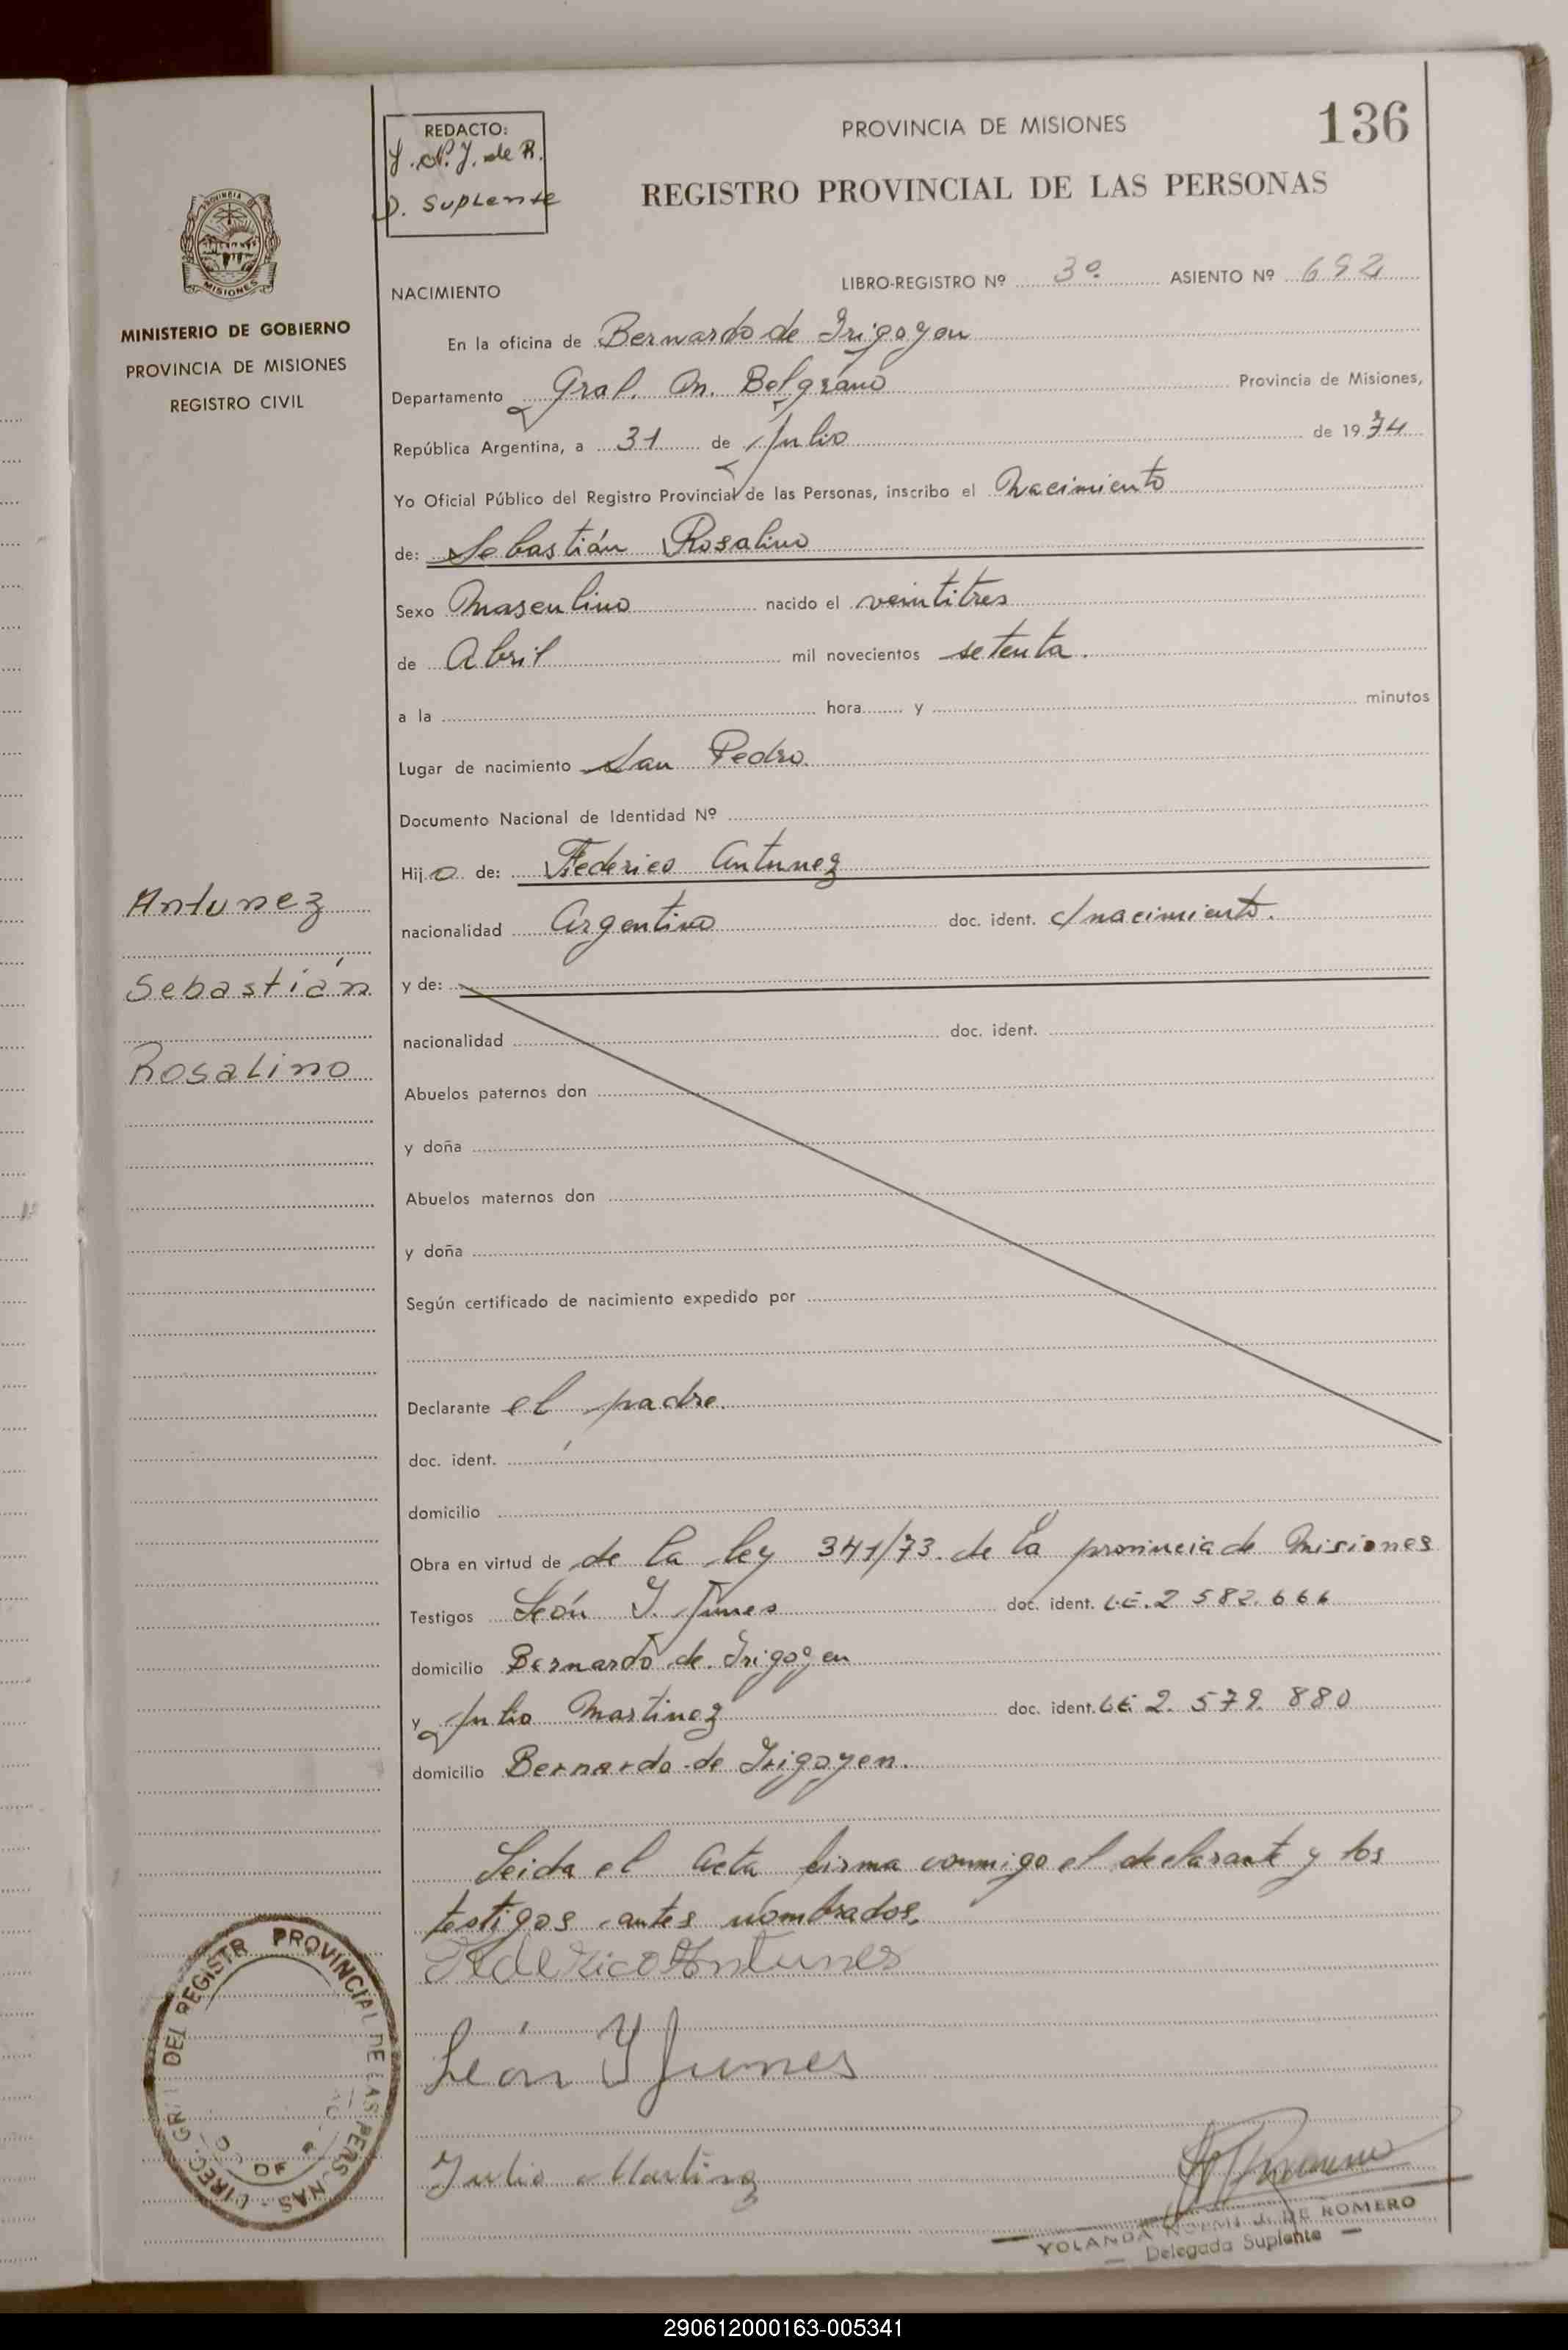 136
PROVINCIA DE MISIONES
REGISTRO PROVINCIAL DE LAS PERSONAS
REDACTO:
Y. N. J. de R.
D. Suplente
PROVINCIA DE
MISIONES
MINISTERIO DE GOBIERNO
PROVINCIA DE MISIONES
REGISTRO CIVIL
NACIMIENTO
LIBRO-REGISTRO Nº 3º ASIENTO Nº 692
En la oficina de Bernardo de Irigoyen
Departamento Gral. M. Belgrano Provincia de Misiones,
República Argentina, a 31 de Julio de 1974
Yo Oficial Público del Registro Provincial de las Personas, inscribo el Nacimiento
de: Sebastián Rosalino
Sexo Masculino nacido el veintitres
de Abril mil novecientos setenta.
a la hora y minutos
Lugar de nacimiento San Pedro.
Documento Nacional de Identidad Nº
Hijo de: Federico Antunez
Antunez
nacionalidad Argentino doc. ident. c/nacimiento.
Sebastián
y de:
nacionalidad doc. ident.
Rosalino
Abuelos paternos don
y doña
Abuelos maternos don
y doña
Según certificado de nacimiento expedido por
Declarante el padre.
doc. ident.
domicilio
Obra en virtud de de la ley 341/73 de la provincia de Misiones
Testigos León Y. Junes doc. ident. L.E. 2 582.666
domicilio Bernardo de Irigoyen
y Julio Martinez doc. ident. LE 2. 579. 880
domicilio Bernardo de Irigoyen.
Leida el Acta firma conmigo el declarante y los
testigos antes nombrados.
Federico Antunes
León Y Junes
Julio Martinz
DIREC. GRAL DEL REGISTR PROVINCIAL DE LAS PERSONAS
YOLANDA NOEMI J. DE ROMERO
Delegada Suplente
290612000163-005341